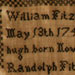 William Fitz
May 13th 174
hugh born Nov
Randolph Fi